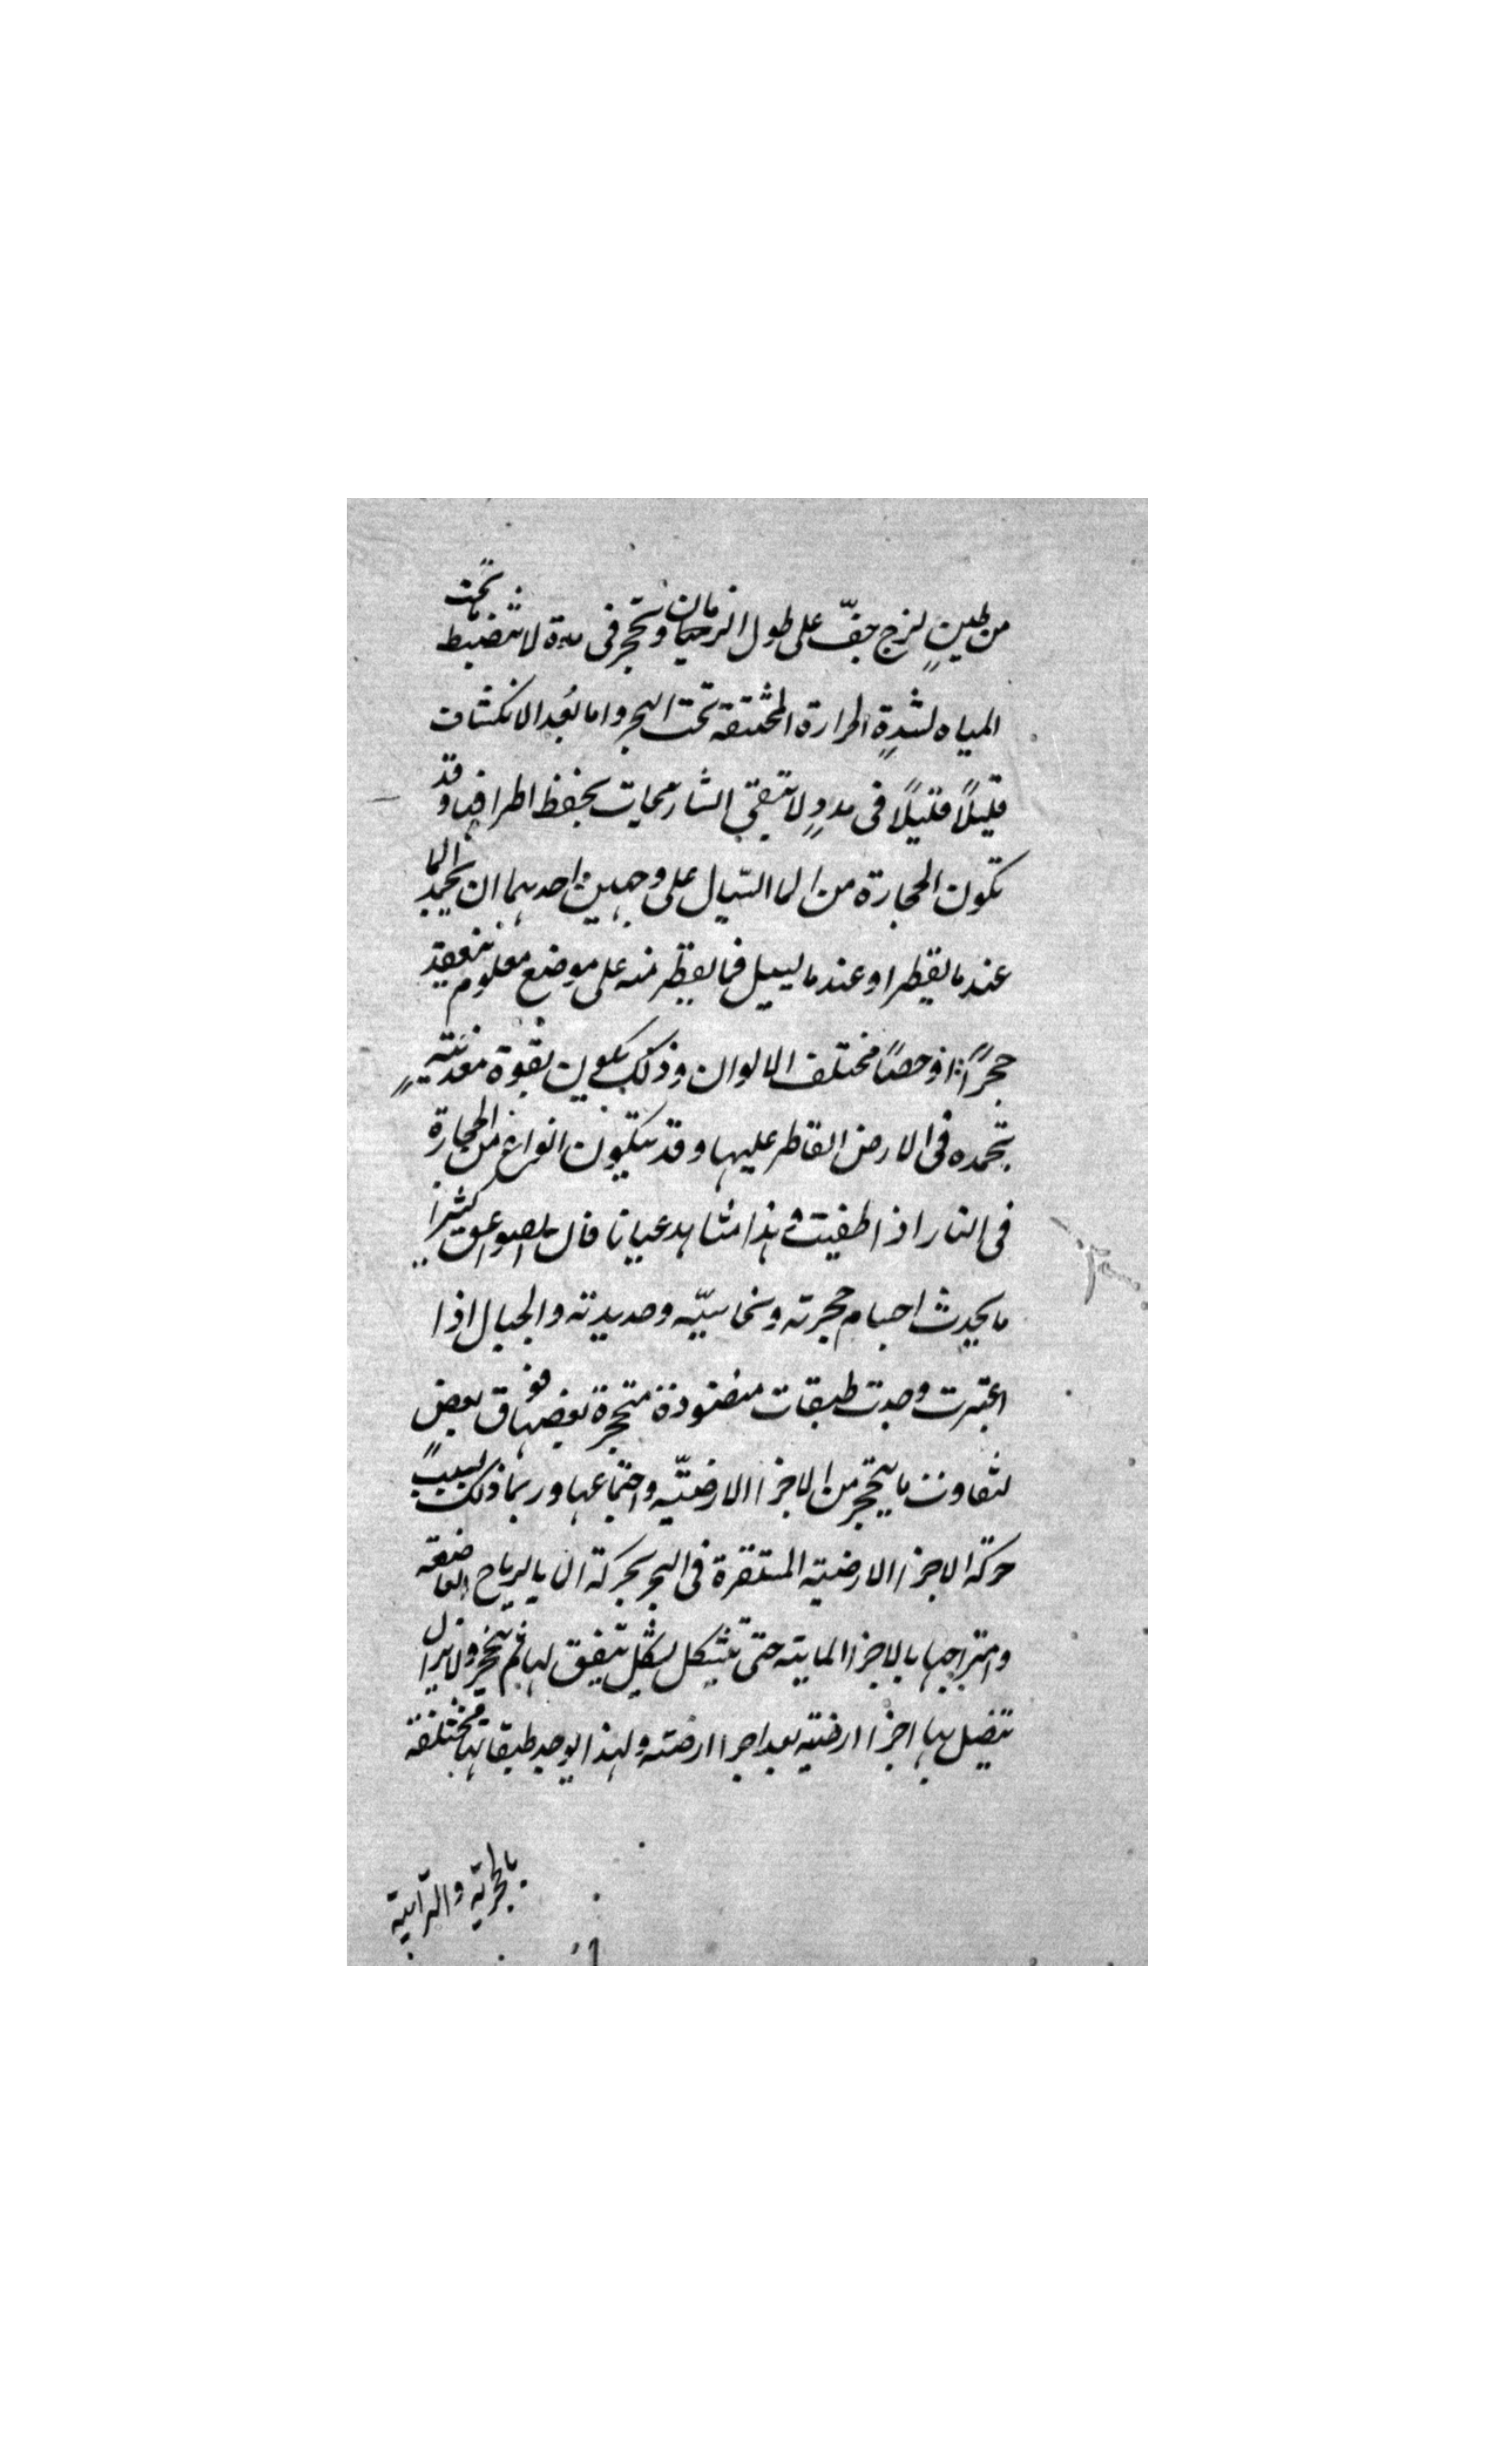 من طين لزج جف على طول الزمان وتحجر فى مدة لا تنضبط تحت
المياه لشدة الحرارة المختنقة تحت البحر واما بعد الانكشاف
قليلاً قليلاً فى مدد لا تبقى التاريخات بحفظ اطرافها وقد
تكون الحجارة من الما السيال على وجهين احدهما ان يجمد الما
عند ما يقطر او عند ما يسيل فما يقطر منه على موضع معلوم ينعقد
حجراً او حصاً مختلف الالوان وذلك يكون بقوة معدنية
تجمده فى الارض القاطر عليها وقد يتكون انواع من الحجارة
فى النار اذا طفيت هذا مشاهد عيانا فان الصواعق كثيرا
ما يحدث اجسام حجرية ونحاسيّه وحديدية والجبال اذا
اعتبرت وجدت طبقات منضودة متحجرة بعضها فوق بعض
لتفاوت ما يتحجر من الاجزا الارضيّه واجتماعها وربما ذلك بسبب
حركة الاجزا الارضية المستقرة فى البحر بحركة بالرياح
وامتزاجها بالاجزا المايية حتى تتشكل بشكل يتفق لها ثم ولا يزال
تتصل بها اجزا ارضية بعد اجزا ارضية ولهذا يوجد طبقاتها مختلفة
بالحجرية والترابية